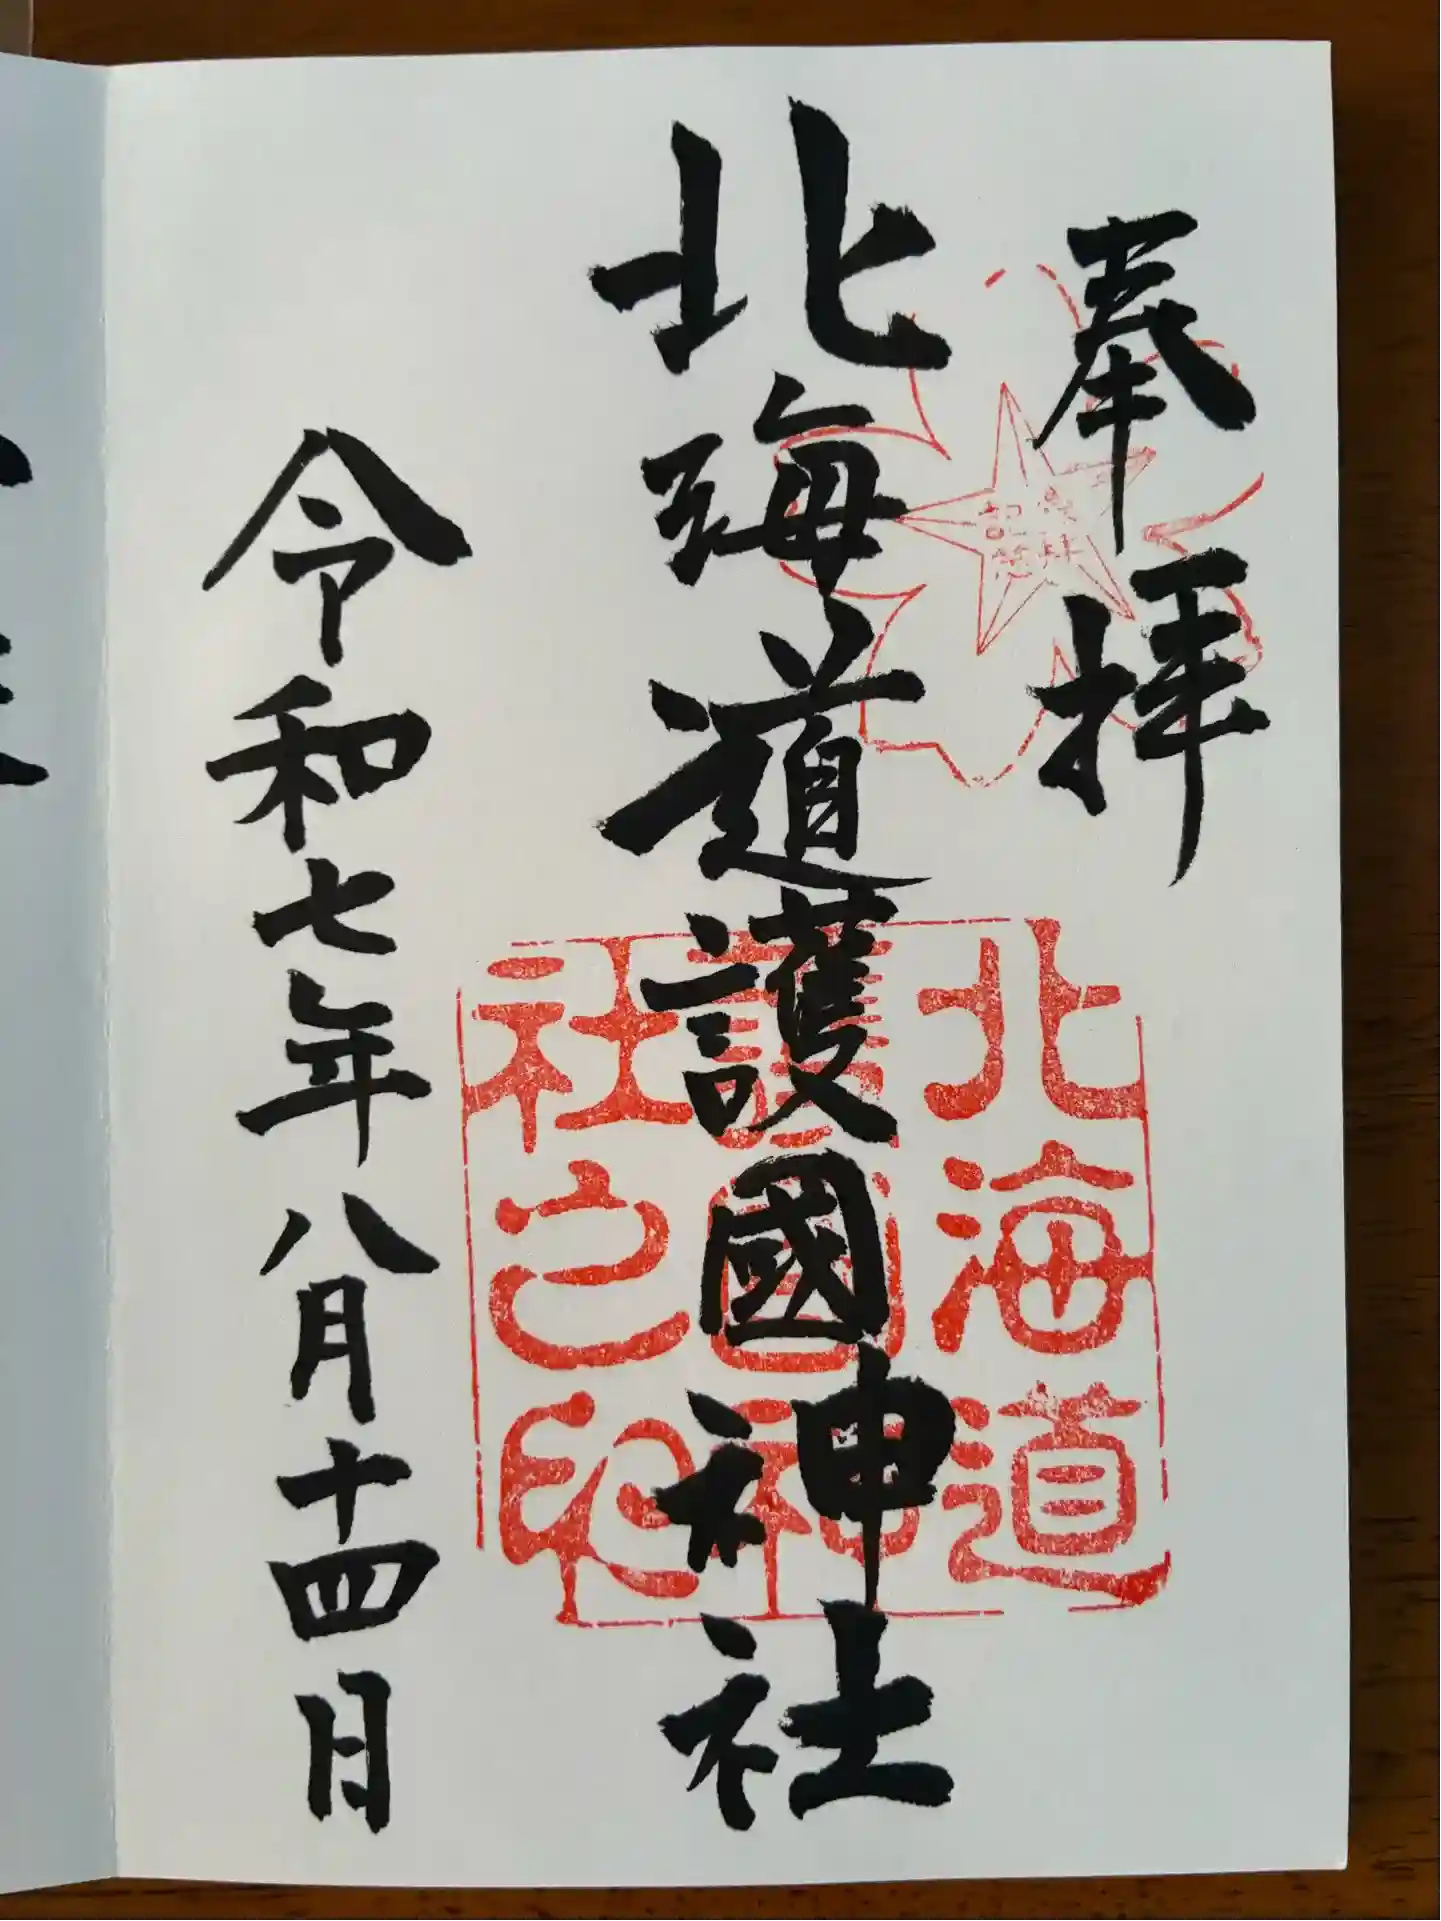 奉拝
北海道護國神社
令和七年八月十四日
参拝
記念
北海道
護國神
社之印